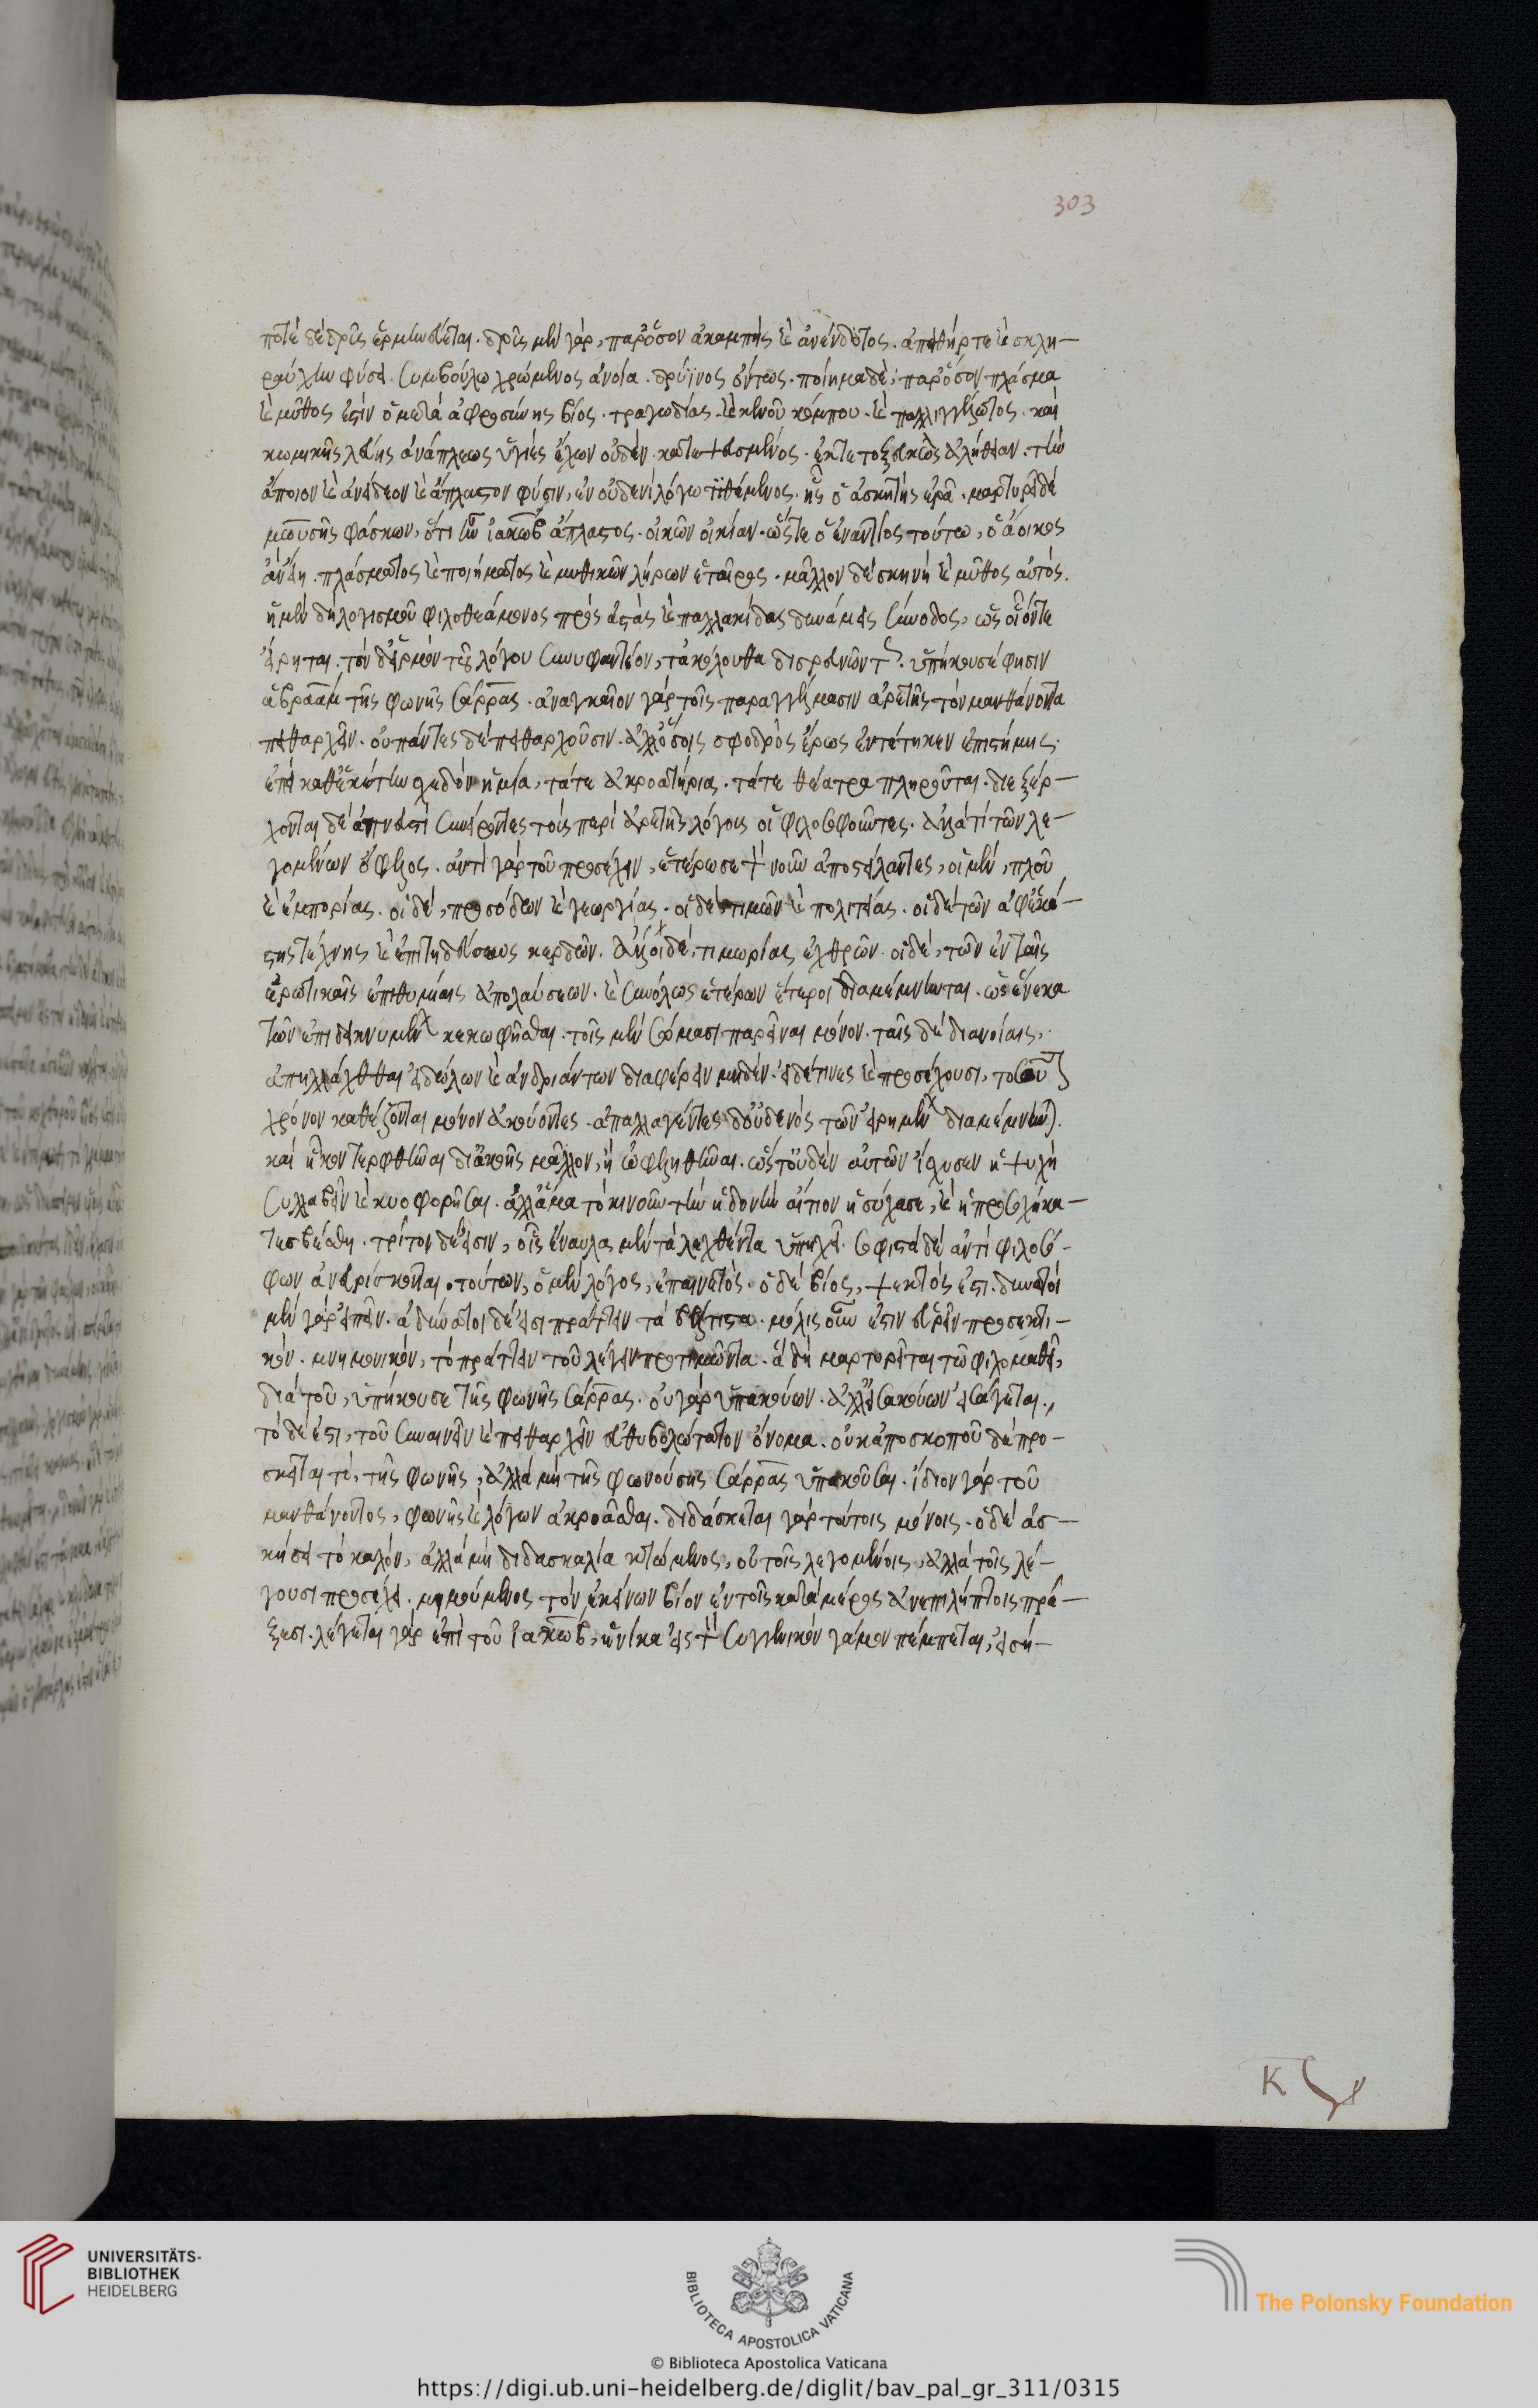 ποτὲ δὲ δρῦς ἑρμηνεύεται. δρῦς μὲν γὰρ, παρόσον ἀκαμπὴς καὶ ἀνένδοτος. ἀπειθής τε καὶ σκλη-
ραύχην φύσει. συμβούλω χρώμενος ἀνοία. δρύϊνος ὄντως. ποίημα δὲ, παρόσον πλάσμα
καὶ μῦθος ἐστὶν ὁ μετὰ ἀφροσύνης βίος. τραγωδίας καὶ κενοῦ κόμπου καὶ πάλιν γέλωτος. καὶ
κωμικῆς χλεύης ἀνάπλεως ὑγιὲς ἔχων οὐδέν. κατεψευσμένος. ἐκτετοξευκὼς ἀλήθειαν. τὴν
ἄποιον καὶ ἀνείδεον καὶ ἄπλαστον φύσιν, ἐν οὐδενὶ λόγω τιθέμενος. ἧς ὁ ἀσκητὴς ἐρᾶ. μαρτυρεῖ δὲ
μωυσῆς φάσκων, ὅτι ἦν ἰακὼβ ἄπλαστος. οἰκῶν οἰκίαν. ὥστε ὁ ἐναντίος τούτω, ὁ ἄοικος
ἂν εἴη. πλάσματος καὶ ποιήματος καὶ μυθικῶν λήρων ἑταῖρος. μᾶλλον δὲ σκηνὴ καὶ μῦθος αὐτός.
ἡ μὲν δὴ λογισμοῦ φιλοθεάμονος πρὸς ἀστὰς καὶ παλλακίδας δυνάμεις σύνοδος, ὡς οἷόντε
εἴρηται. τὸν δ' εἱρμὸν τοῦ λόγου συνυφαντέον, τἀκόλουθα διερευνῶντας. ὑπήκουσέ φησιν
ἀβραὰμ τῆς φωνῆς σάρρας. ἀναγκαῖον γὰρ τοῖς παραγγέλμασιν ἀρετῆς τὸν μανθάνοντα
πειθαρχεῖν. οὐ πάντες δὲ πειθαρχοῦσιν. ἀλλ' ὅσοις σφοδρὸς ἔρως ἐντέτηκεν ἐπιστήμης.
ἐπεὶ καθ' ἑκάστην σχεδὸν ἡμέραν, τά τε ἀκροατήρια. τά τε θέατρα πληροῦται. διεξέρ-
χονται δὲ ἀπνευστὶ συνείροντες τοὺς περὶ ἀρετῆς λόγους οἱ φιλοσοφοῦντες. ἀλλὰ τί τῶν λε-
γομένων ὄφελος. ἀντὶ γὰρ τοῦ προσέχειν, ἑτέρωσε τὸν νοῦν ἀποστείλαντες, οἱ μὲν, πλοῦ
καὶ ἐμπορίας. οἱ δὲ, προσόδων καὶ γεωργίας. οἱ δὲ, τιμῶν καὶ πολιτείας. οἱ δὲ τῶν ἀφ' ἑκά-
στης τέχνης καὶ ἐπιτηδεύσεως κερδῶν. ἄλλοι δὲ, τιμωρίας ἐχθρῶν. οἱ δὲ, τῶν ἐν ταῖς
ἐρωτικαῖς ἐπιθυμίαις ἀπολαύσεων. καὶ συνόλως ἑτέρων ἕτεροι διαμέμνηνται. ὡς ἕνεκα
τῶν ἐπιδεικνυμένων κεκωφῆσθαι. τοῖς μὲν σώμασι παρεῖναι μόνον. ταῖς δὲ διανοίαις,
ἀπηλλάχθαι εἰδώλων καὶ ἀνδριάντων διαφέρειν μηδέν. εἰ δέ τινες καὶ προσέχουσι, τοσοῦτον
χρόνον καθέζονται μόνον ἀκούοντες. ἀπαλλαγέντες δ' οὐδενὸς τῶν εἰρημένων διαμέμνηνται.
καὶ ἧκον τερφθῆναι δι' ἀκοῆς μᾶλλον, ἢ ὠφεληθῆναι. ὥστ' οὐδὲν αὐτῶν ἴσχυσεν ἡ ψυχὴ
συλλαβεῖν καὶ κυοφορῆσαι. ἀλλ' ἅμα τὸ κινοῦν τὴν ἡδονὴν αἴτιον ἡσύχασε, καὶ ἡ προσοχὴ κα-
τεσβέσθη. τρίτον δ' εἰσιν, οἷς ἔναυλα μὲν τὰ λεχθέντα ὑπηχεῖ. σοφισταὶ δὲ ἀντὶ φιλοσό-
φων ἀνευρίσκονται. τούτων, ὁ μὲν λόγος, ἐπαινετός. ὁ δὲ βίος, ψεκτός ἐστι. δυνατοὶ
μὲν γὰρ εἰπεῖν. ἀδύνατοι δέ εἰσι πράττειν τὰ βέλτιστα. μόλις οὖν ἐστιν εὑρεῖν προσεκτι-
κόν. μνημονικόν, τὸ πράττειν τοῦ λέγειν προτιμῶντα. ἃ δὴ μαρτυρεῖται τῶ φιλομαθεῖ,
διὰ τοῦ, ὑπήκουσε τῆς φωνῆς σάρρας. οὐ γὰρ ὑπακούων. ἀλλ' εἰσακούων εἰσάγεται.
τὸ δέ ἐστι, τοῦ συναινεῖν καὶ πειθαρχεῖν εὐθυβολώτατον ὄνομα. οὐκ ἀπὸ σκοποῦ δὲ προ-
σκεῖται τὸ, τῆς φωνῆς, ἀλλὰ μὴ τῆς φωνούσης σάρρας ὑπακοῦσαι. ἴδιον γὰρ τοῦ
μανθάνοντος, φωνῆς καὶ λόγων ἀκροᾶσθαι. διδάσκεται γὰρ τούτοις μόνοις. ὁ δὲ ἀσ-
κήσει τὸ καλόν, ἀλλὰ μὴ διδασκαλία κτώμενος, οὐ τοῖς λεγομένοις, ἀλλὰ τοῖς λέ-
γουσι προσέχει. μιμούμενος τὸν ἐκείνων βίον ἐν τοῖς κατὰ μέρος ἀνεπιλήπτοις πρά-
ξεσι. λέγεται γὰρ ἐπὶ τοῦ ἰακὼβ, ἡνίκα εἰς τὸν συγγενικὸν γάμον πέμπεται, εἰσή-
303
UNIVERSITÄTS-
BIBLIOTHEK
HEIDELBERG
BIBLIOTECA APOSTOLICA VATICANA
© Biblioteca Apostolica Vaticana
The Polonsky Foundation
https://digi.ub.uni-heidelberg.de/diglit/bav_pal_gr_311/0315